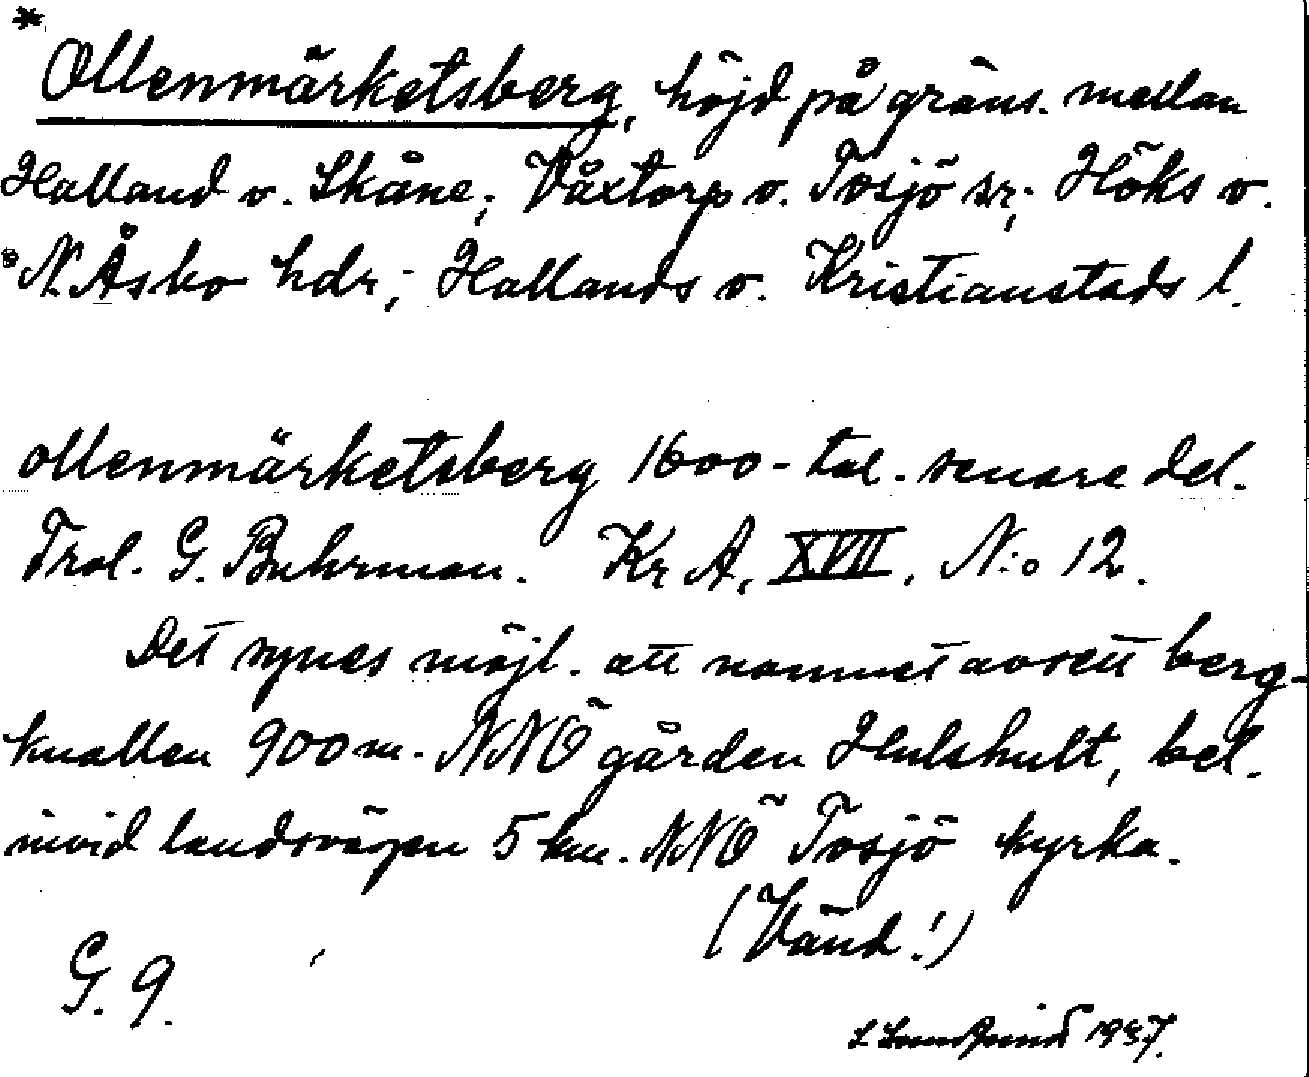 *
Ollenmärketsberg, höjd på gräns. mellan
Halland o. Skåne; Våxtorp o. Tosjö sr; Höks o.
N. Åsbo hdr; Hallands o. Kristianstads l.
Ollenmärketsberg 1600-tal. senare del.
Trol. G. Buhrman. Kr A, XVII, N:o 12.
Det synes möjl. att namnet avsett berg-
knallen 900 m. NNÖ gården Hulshult, bel.
invid landsvägen 5 km. NNÖ Tosjö kyrka.
(Vänd!)
G. 9.